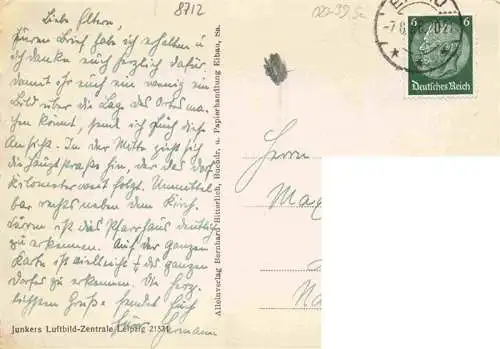 8712
Liebe Eltern,
Euren Brief habe ich erhalten u
ich danke euch herzlich dafür
damit ihr euch ein wenig ein
Bild über die Lage des Ortes ma-
chen könnt, sende ich Euch diese
Ansicht. In der Mitte zieht sich
die Hauptstraße hin, der das Dorf
kilometerweit folgt. Unmittel-
bar rechts neben dem Kirch-
türm ist das Pfarrhaus deutlich
zu erkennen. Auf der ganzen
Karte ist vielleicht des ganzen
Dorfes zu erkennen. Die herz-
lichsten Grüße sendet Euch
Euer Hermann
Junkers Luftbild-Zentrale Leipzig 21571
Alleinverlag Bernhard Ritterlich, Buchdr. u. Papierhandlung Eibau, Sa.
6 6
Deutsches Reich
Herrn